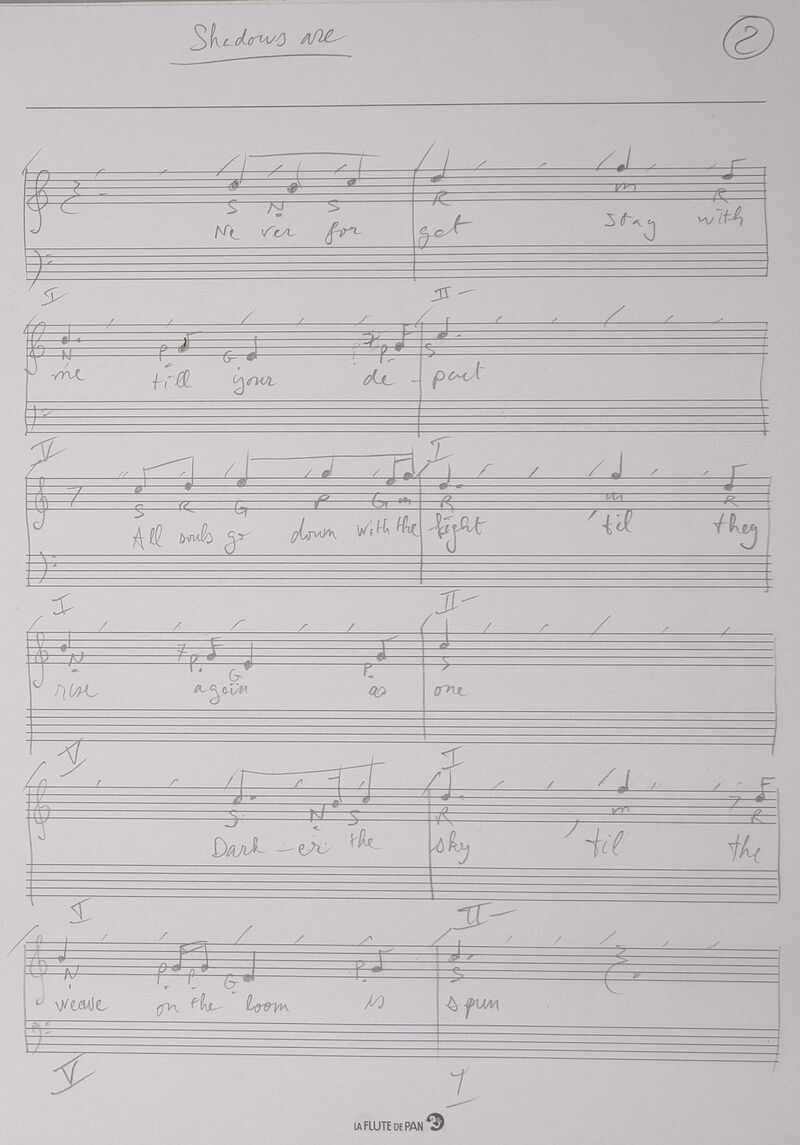 Shadows are
2
S N S R m R
Ne ver for get stay with
I II-
N P G P S
me till your de - part
V I
S R G P G m R m R
All souls go down with the light 'til they
I II-
N P G P S
rise again as one
V I
S N S R m R
Dark - er the sky 'til the
I II-
N P P G P S
weave on the loom is spun
V
LA FLUTE DE PAN